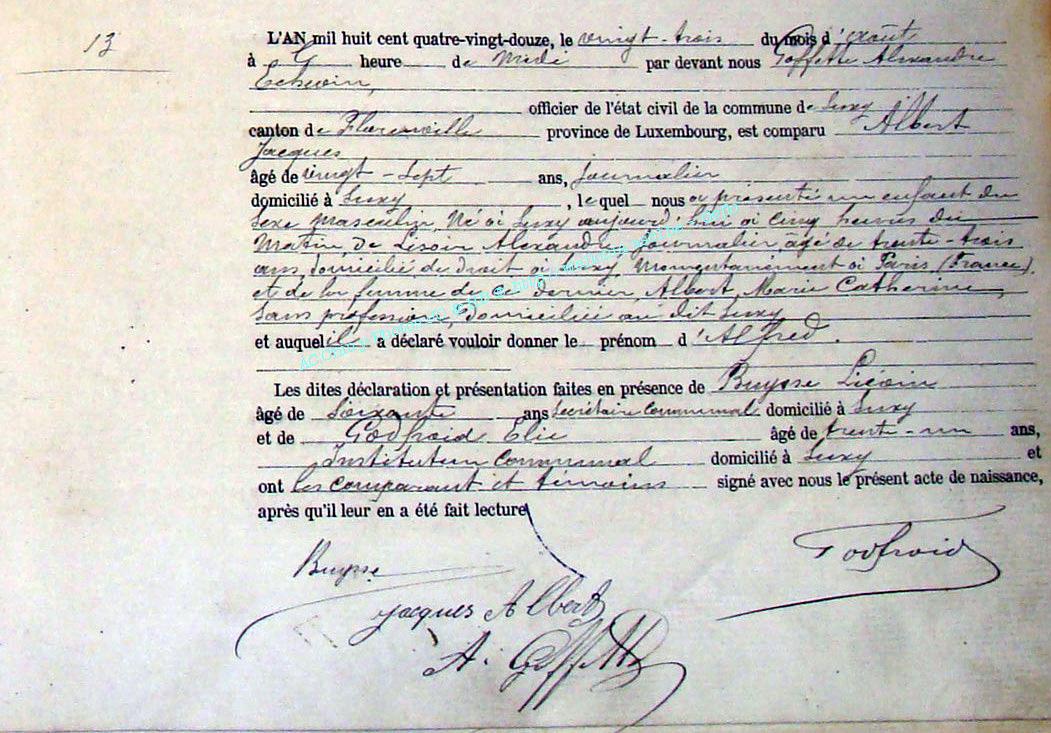 13
L'AN mil huit cent quatre-vingt-douze, le vingt-trois du mois d'août
à heure de Midi par devant nous Goffette Alexandre
Echevin,
officier de l'état civil de la commune de Suxy
canton de Florenville province de Luxembourg, est comparu Albert
Jacques
âgé de vingt-sept ans, journalier
domicilié à Suxy, lequel nous a présenté un enfant du
sexe masculin, Né à Suxy aujourd'hui à cinq heures du
Matin, de Lisoir Alexandre, journalier âgé de trente-trois
ans, domicilié de droit à Suxy, Momentanément à Paris (France)
et de la femme de ce dernier, Albert Marie Catherine,
sans profession, domiciliée au dit Suxy
et auquel il a déclaré vouloir donner le prénom d'Alfred.
Les dites déclaration et présentation faites en présence de Buysse
âgé de Soixante ans Secrétaire Communal domicilié à Suxy
et de Godfroid Elie âgé de trente-un ans,
Instituteur communal domicilié à Suxy et
ont les comparant et témoins signé avec nous le présent acte de naissance,
après qu'il leur en a été fait lecture
Buysse
Godfroid
Jacques Albert
A. Goffette